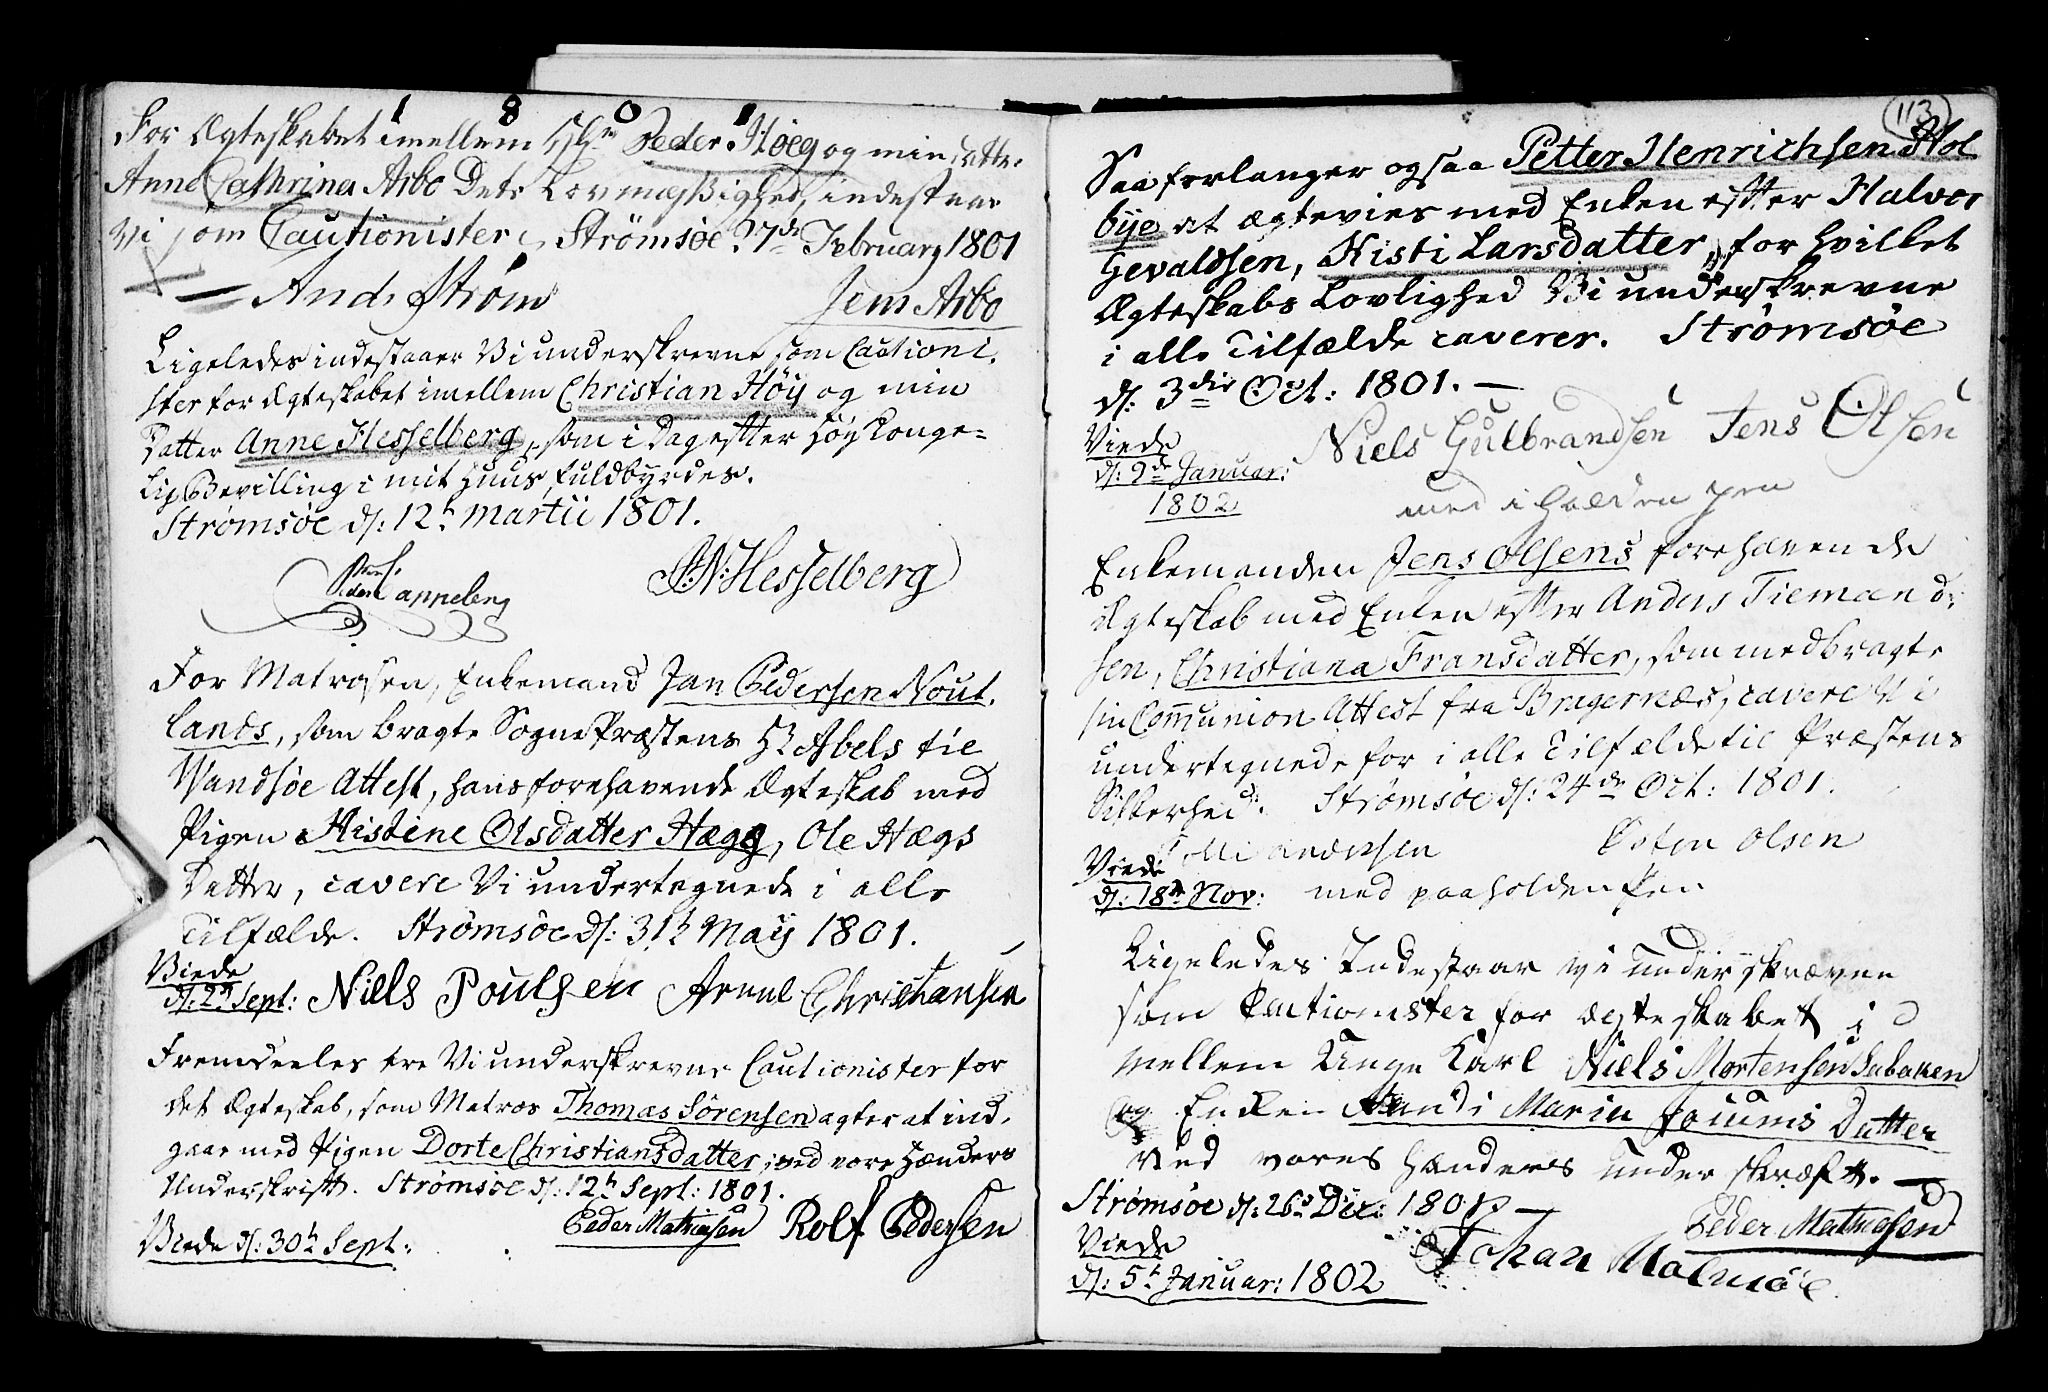 1801
For Ægteskabet imellem Peder Høeg og min Datter
Anne Cathrina Arbo Dets Lovmæßighed, indestaar
Vi som Cautionister, Strømsøe 27de February 1801
And. Strøm Jens Arbo
Ligeledes indestaaer Vi underskrevne som Cautioni-
ster for Ægteskabet imellem Christian Höij og min
Datter Anne Hesselberg, som i Dag efter Høy Konge-
lig Bevilling i mit Huus fuldbyrdes.
Strømsøe d: 12te Martii 1801.
Peder Cappelen Hesselberg
For Matrosen, Enkemand Jan Pedersen Nout-
lands, som bragte Sogne Præstens Hr Abels til
Wandsøe Attest, hans forehavende Ægteskab med
Pigen Kistine Olsdatter Hægg, Ole Hægs
Datter, cavere Vi undertegnede i alle
Tilfælde. Strømsøe d: 31te May 1801.
Viede
d: 2den Sept: Niels Poulsen Christiansen
Fremdeeles ere Vi underskrevne Cautionister for
det Ægteskab, som Matros Thomas Sörensen agter at ind-
gaae med Pigen Dorte Christiansdatter, ved vore Hænders
Underskrift. Strømsøe d: 12te Sept: 1801.
Peder Mathiesen Rolf Pedersen
Viede d: 30te Sept:
113
Saa forlanger ogsaa Petter Henrichsen Hol
bye at ægtevies med Enken efter Halvor
Gevaldsen, Kisti Larsdatter, for hvilket
Ægteskabs Lovlighed Vi underskrevne
i alle Tilfælde caverer. Strømsøe
d: 3die Oct: 1801.
Viede
d: 9de Januar:
1802
Niels Gulbrandsen Jens Olsen
med iholden pen
Enkemanden Jens Olsens forehavende
Ægteskab med Enken efter Anders Tiemand-
sen, Christiana Fransdatter, som medbragte
sin Communion Attest fra Bragernæs, cavere Vi
undertegnede for i alle Tilfælde til Præstens
Sikkerhed. Strømsøe d: 24de Oct: 1801.
Østen Olsen
Viede
d: 18de Nov: med paaholden Pen
Ligeledes Indestaar vi underskrævne
som Cautionister for ægteskabet i
mellem Unge Karl Niels Mortensen Sabaken
og Enken Randi Maria Joiums Datter
ved vores hænders underskræft.
Strømsøe d: 26de Dec: 1801
Peder Mathiesen
Viede
d: 5te Januar: 1802
Johan Malmsöe